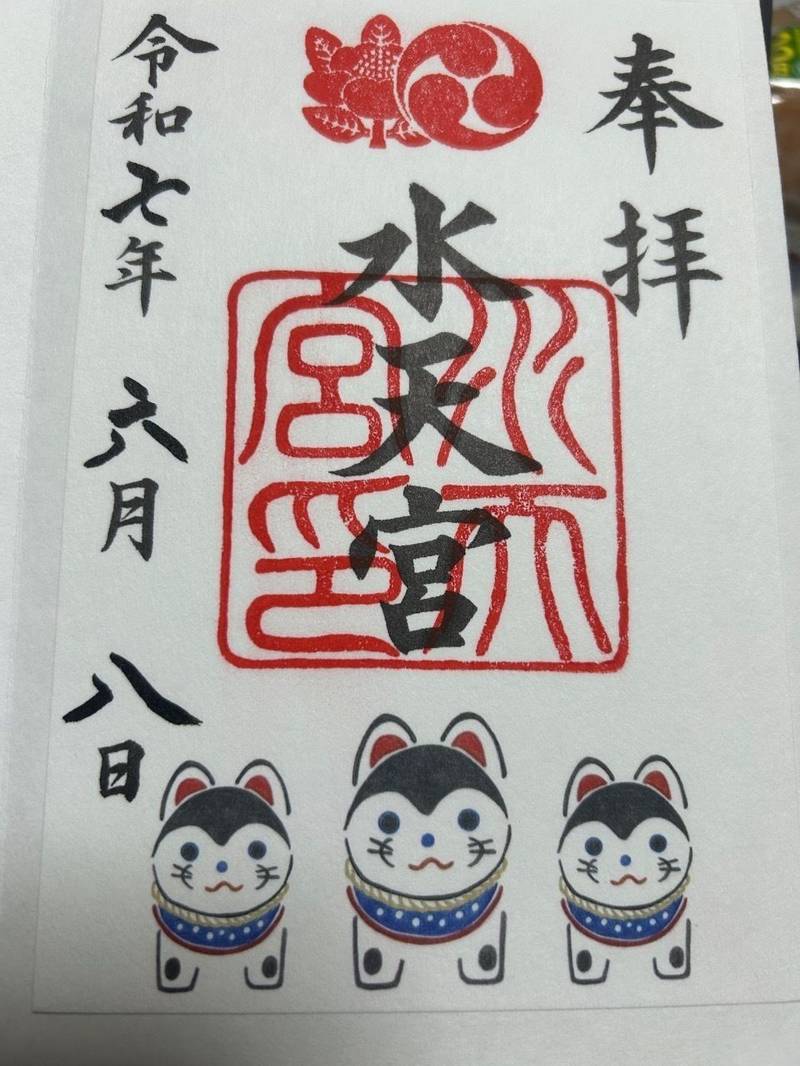 奉拝
水天宮
水天宮印
令和七年 六月 八日